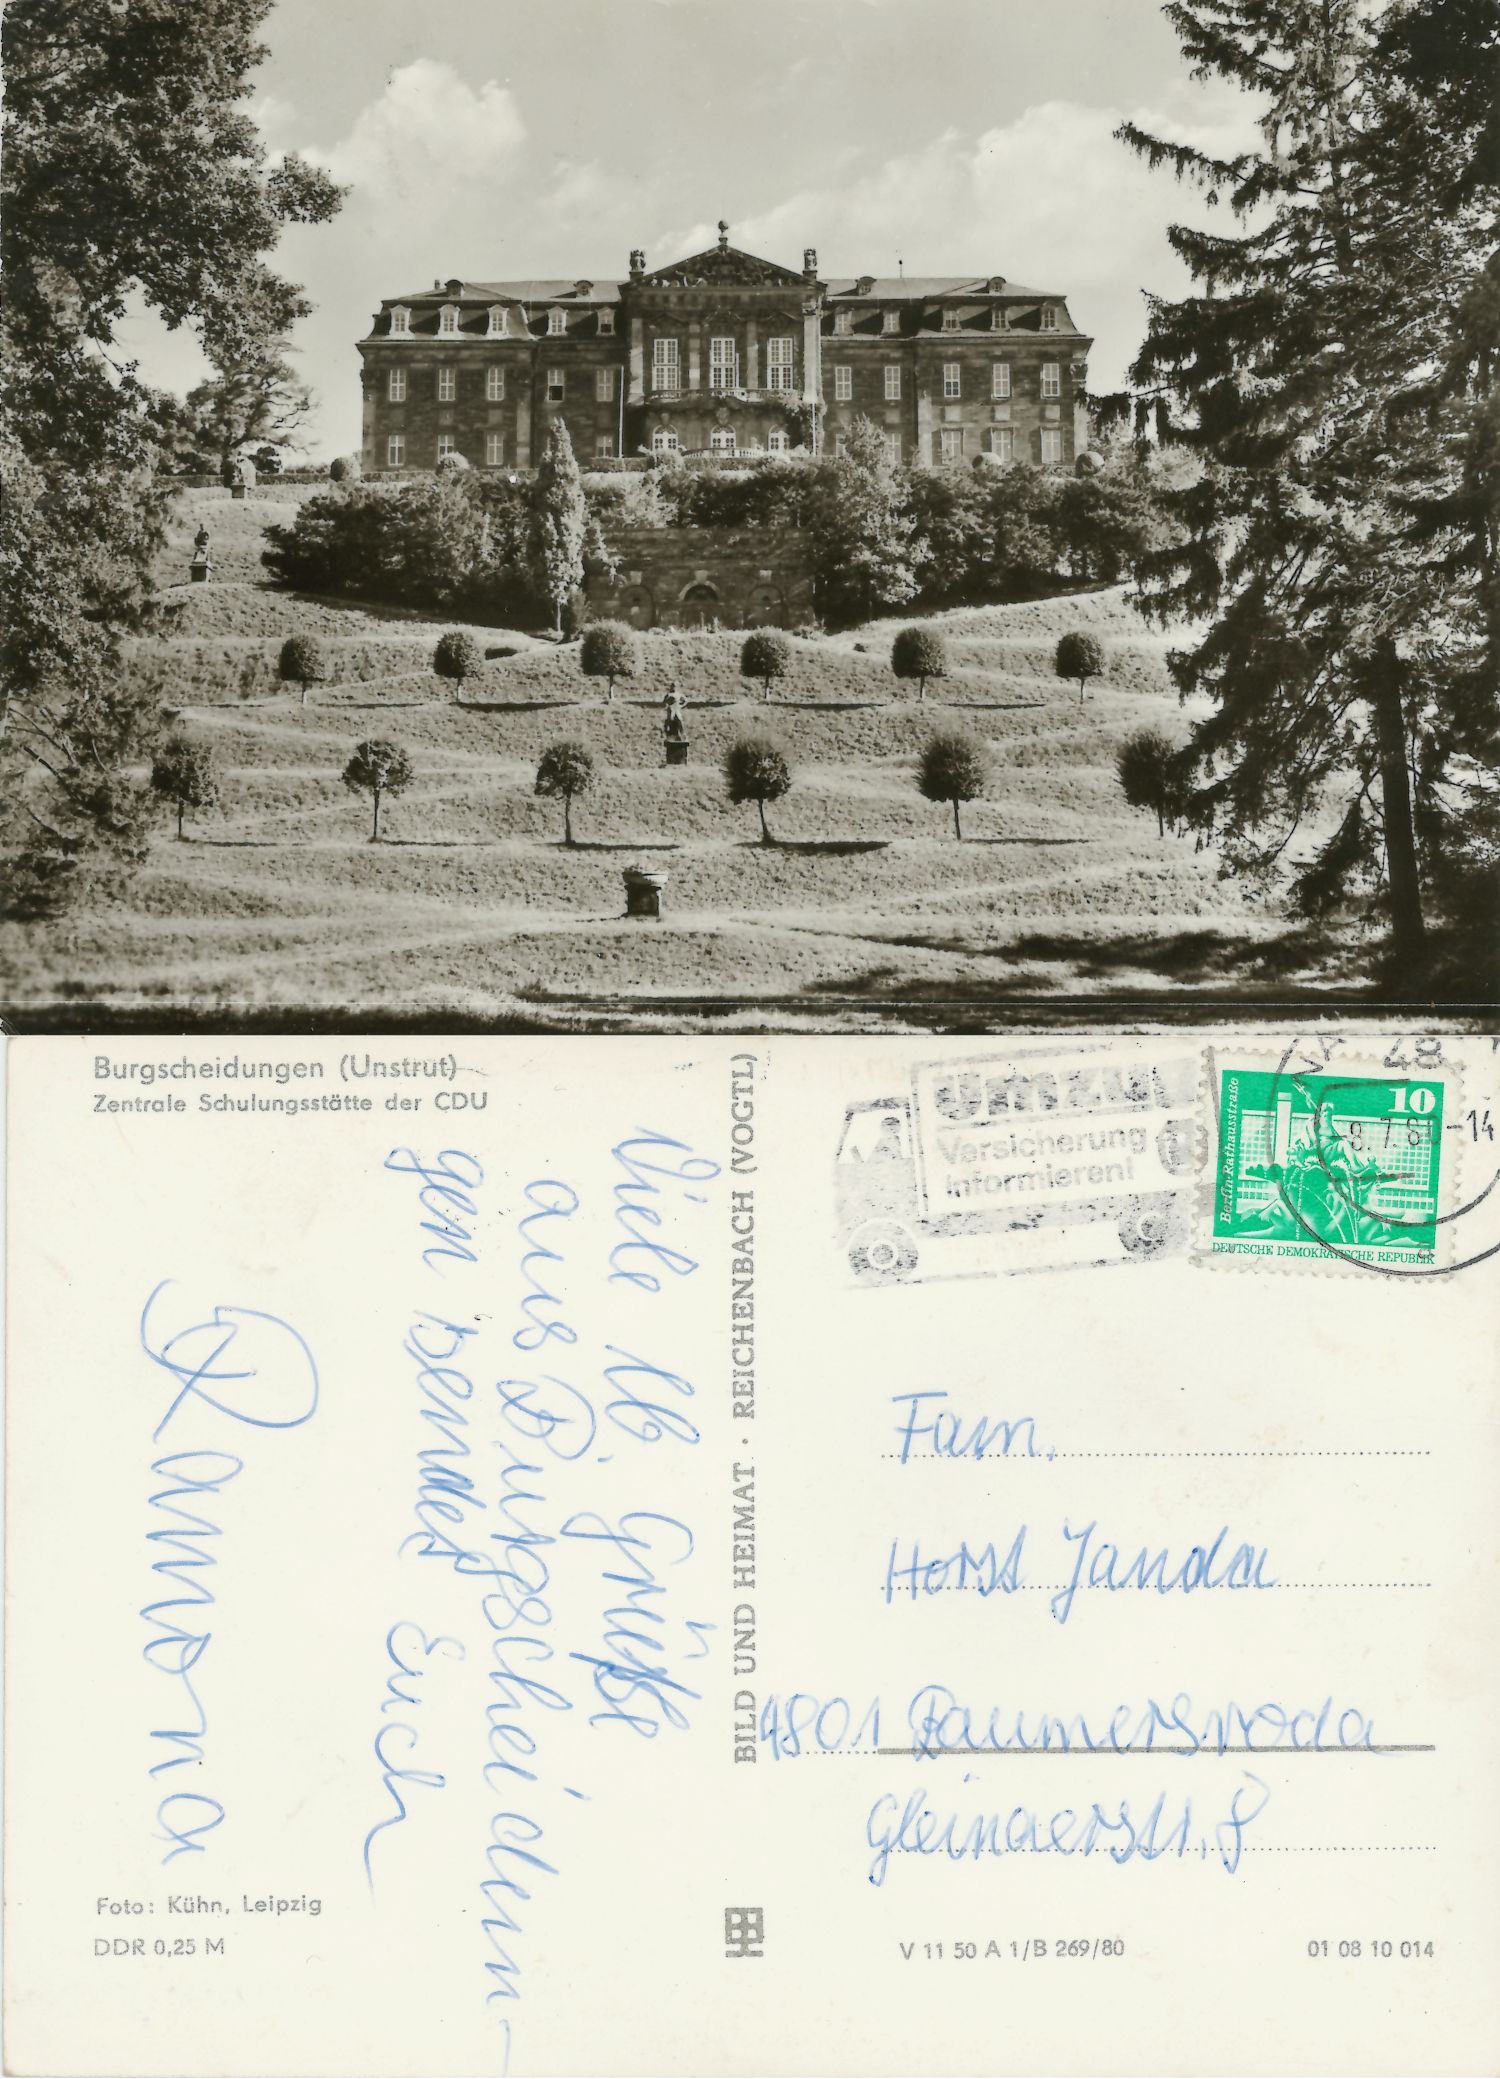 Burgscheidungen (Unstrut)
Zentrale Schulungsstätte der CDU
Viele lb Grüße
aus Burgscheidun-
gen sendet Euch
Ramona
Foto: Kühn, Leipzig
DDR 0,25 M
BILD UND HEIMAT · REICHENBACH (VOGTL)
Umzug
Versicherung
informieren!
48
-8.7.80-14
a
10
Berlin-Rathausstraße
DEUTSCHE DEMOKRATISCHE REPUBLIK
Fam.
Horst Janda
4801 Baumersroda
Gleinaerstr. 8
V 11 50 A 1/B 269/80
01 08 10 014